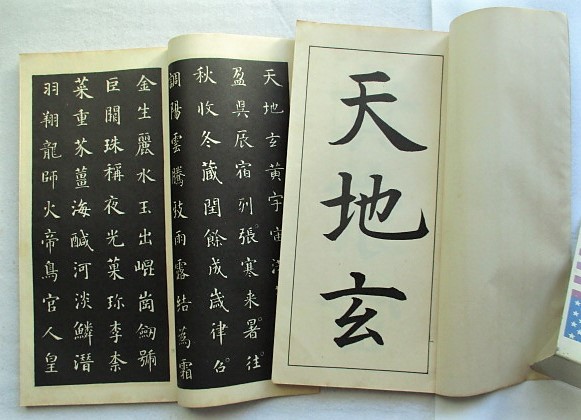 天地玄
天地玄黄宇宙
盈昃辰宿列張寒来暑往
秋收冬蔵閏餘成歳律召
調陽雲騰致雨露結為霜
金生麗水玉出崐崗劒號
巨闕珠稱夜光菓珎李柰
菜重芥薑海醎河淡鱗潛
羽翔龍師火帝鳥官人皇